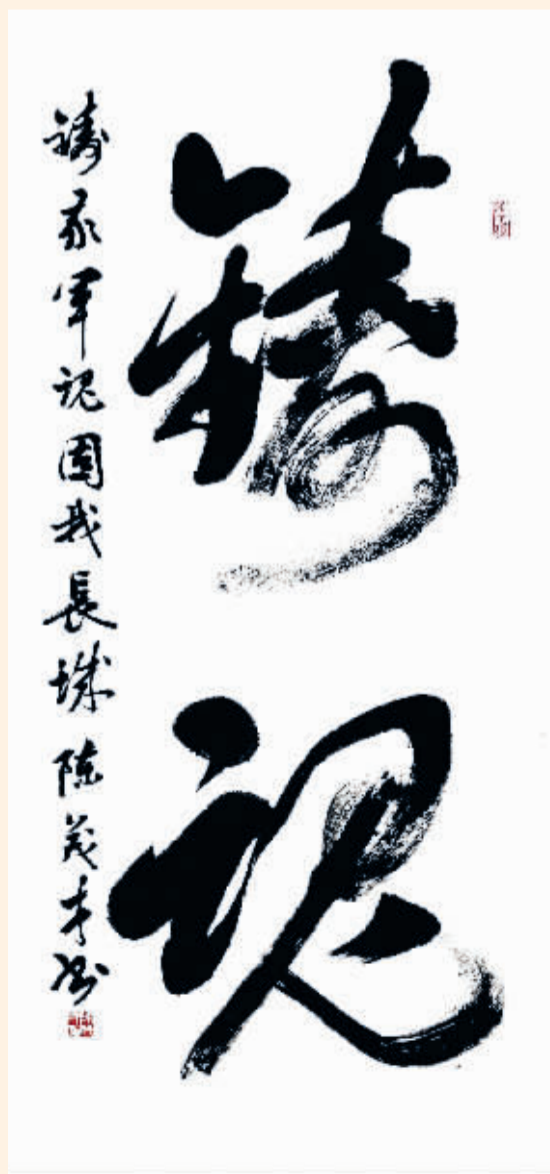 鑄魂
鑄我軍魂固我長城 陳茂才書